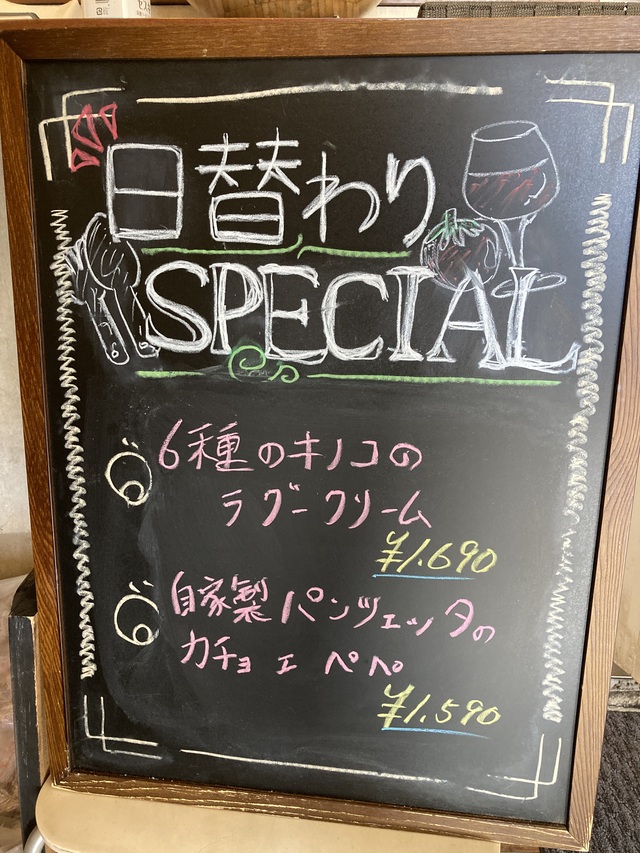 日替わり
SPECIAL
6種のキノコの
ラグークリーム
¥1.690
自家製パンツェッタの
カチョエペペ
¥1.590